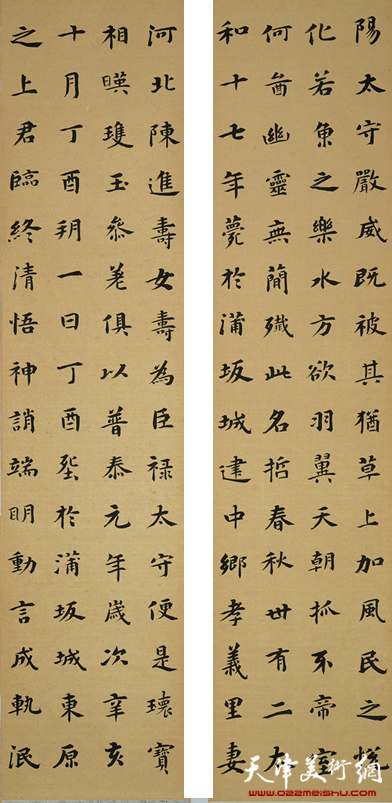 陽太守嚴威既被其猶草上加風民之悅
化若魚之樂水方欲羽翼天朝抓牙帝室
何啚幽靈無簡殲此名哲春秋卅有二太
和十七年薨於蒲坂城建中鄉孝義里妻
河北陳進壽女壽為臣祿太守便是瓌寶
相暎瓊玉參差俱以普泰元年歲次辛亥
十月丁酉朔一日丁酉塟於蒲坂城東原
之上君臨終清悟神誚端明動言成軌泯
天津美術網
www.022meishu.com